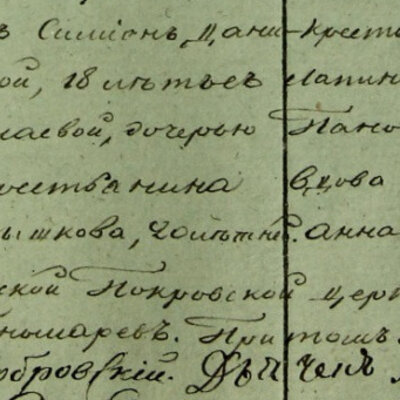 ъ Симіонъ, Дани- Крестья
ой, 18 лѣтъ съ Лапин
лаевой, дочерью Пано
рестьянина вдова
ышкова, 20 лѣтней. Анна
ской Покровской церк
ономаревъ. При томъ
обровскій.